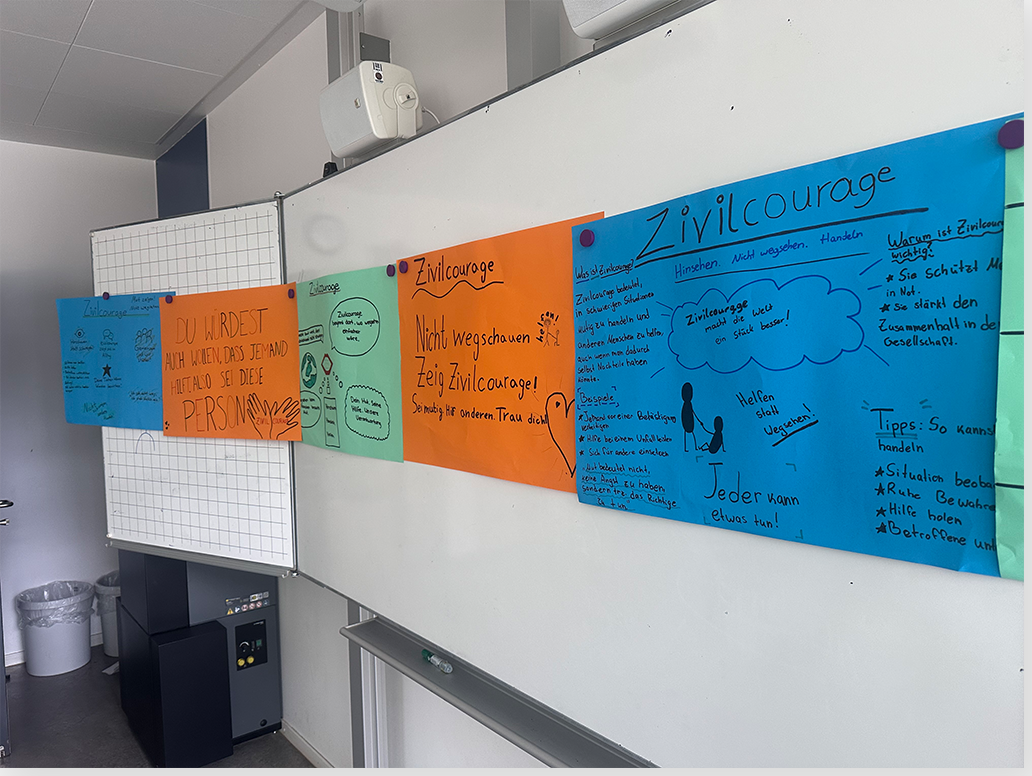 Zivilcourage
DU WÜRDEST
AUCH WOLLEN, DASS JEMAND
HILFT ALSO SEI DIESE
PERSON
ZIVILCOURAGE
Zivilcourage
Zivilcourage
beginnt dort, wo wegsehen
einfacher
wäre.
Dein Mut. Seine
Hilfe. Unsere
Verantwortung
Zivilcourage
Nicht wegschauen
Zeig Zivilcourage!
Sei mutig. Hilf anderen. Trau dich!
Zivilcourage
Hinsehen. Nicht wegsehen. Handeln
Was ist Zivilcourage?
Zivilcourage bedeutet,
in schwierigen Situationen
mutig zu handeln und
anderen Menschen zu helfen,
auch wenn man dadurch
selbst Nachteile haben
könnte.
Beispiele
Jemand vor einer Beleidigung
verteidigen
Hilfe bei einem Unfall leisten
Sich für andere einsetzen
Mut bedeutet nicht,
keine Angst zu haben
sondern trotz das Richtige
zu tun
Zivilcourage
macht die Welt
ein Stück besser!
Helfen
statt
Wegsehen!
Jeder kann
etwas tun!
Warum ist Zivilcour
wichtig?
Sie schützt Me
in Not.
Sie stärkt den
Zusammenhalt in de
Gesellschaft.
Tipps: So kanns
handeln
Situation beoba
Ruhe Bewahre
Hilfe holen
Betroffene unt